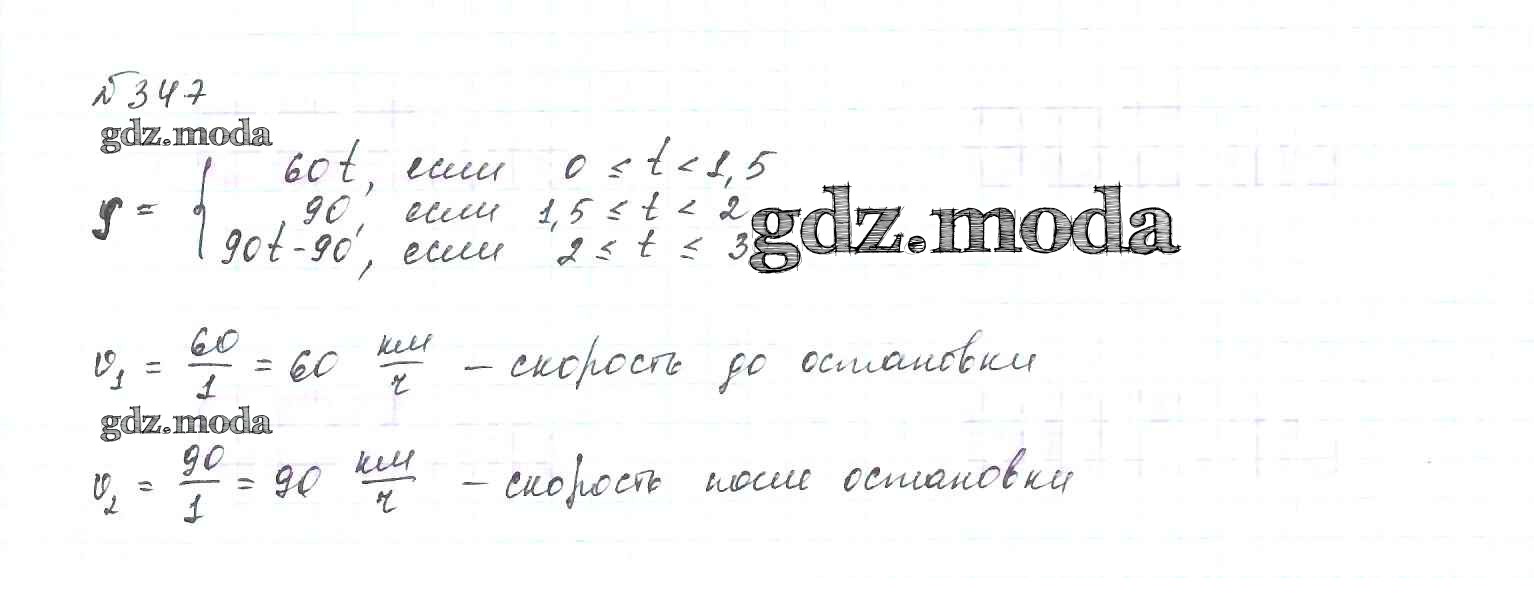 №347
gdz.moda
y = { 60t, если 0 ≤ t < 1,5
90, если 1,5 ≤ t < 2
90t-90, если 2 ≤ t ≤ 3
gdz.moda
v₁ = 60/1 = 60 км/ч – скорость до остановки
gdz.moda
v₂ = 90/1 = 90 км/ч – скорость после остановки